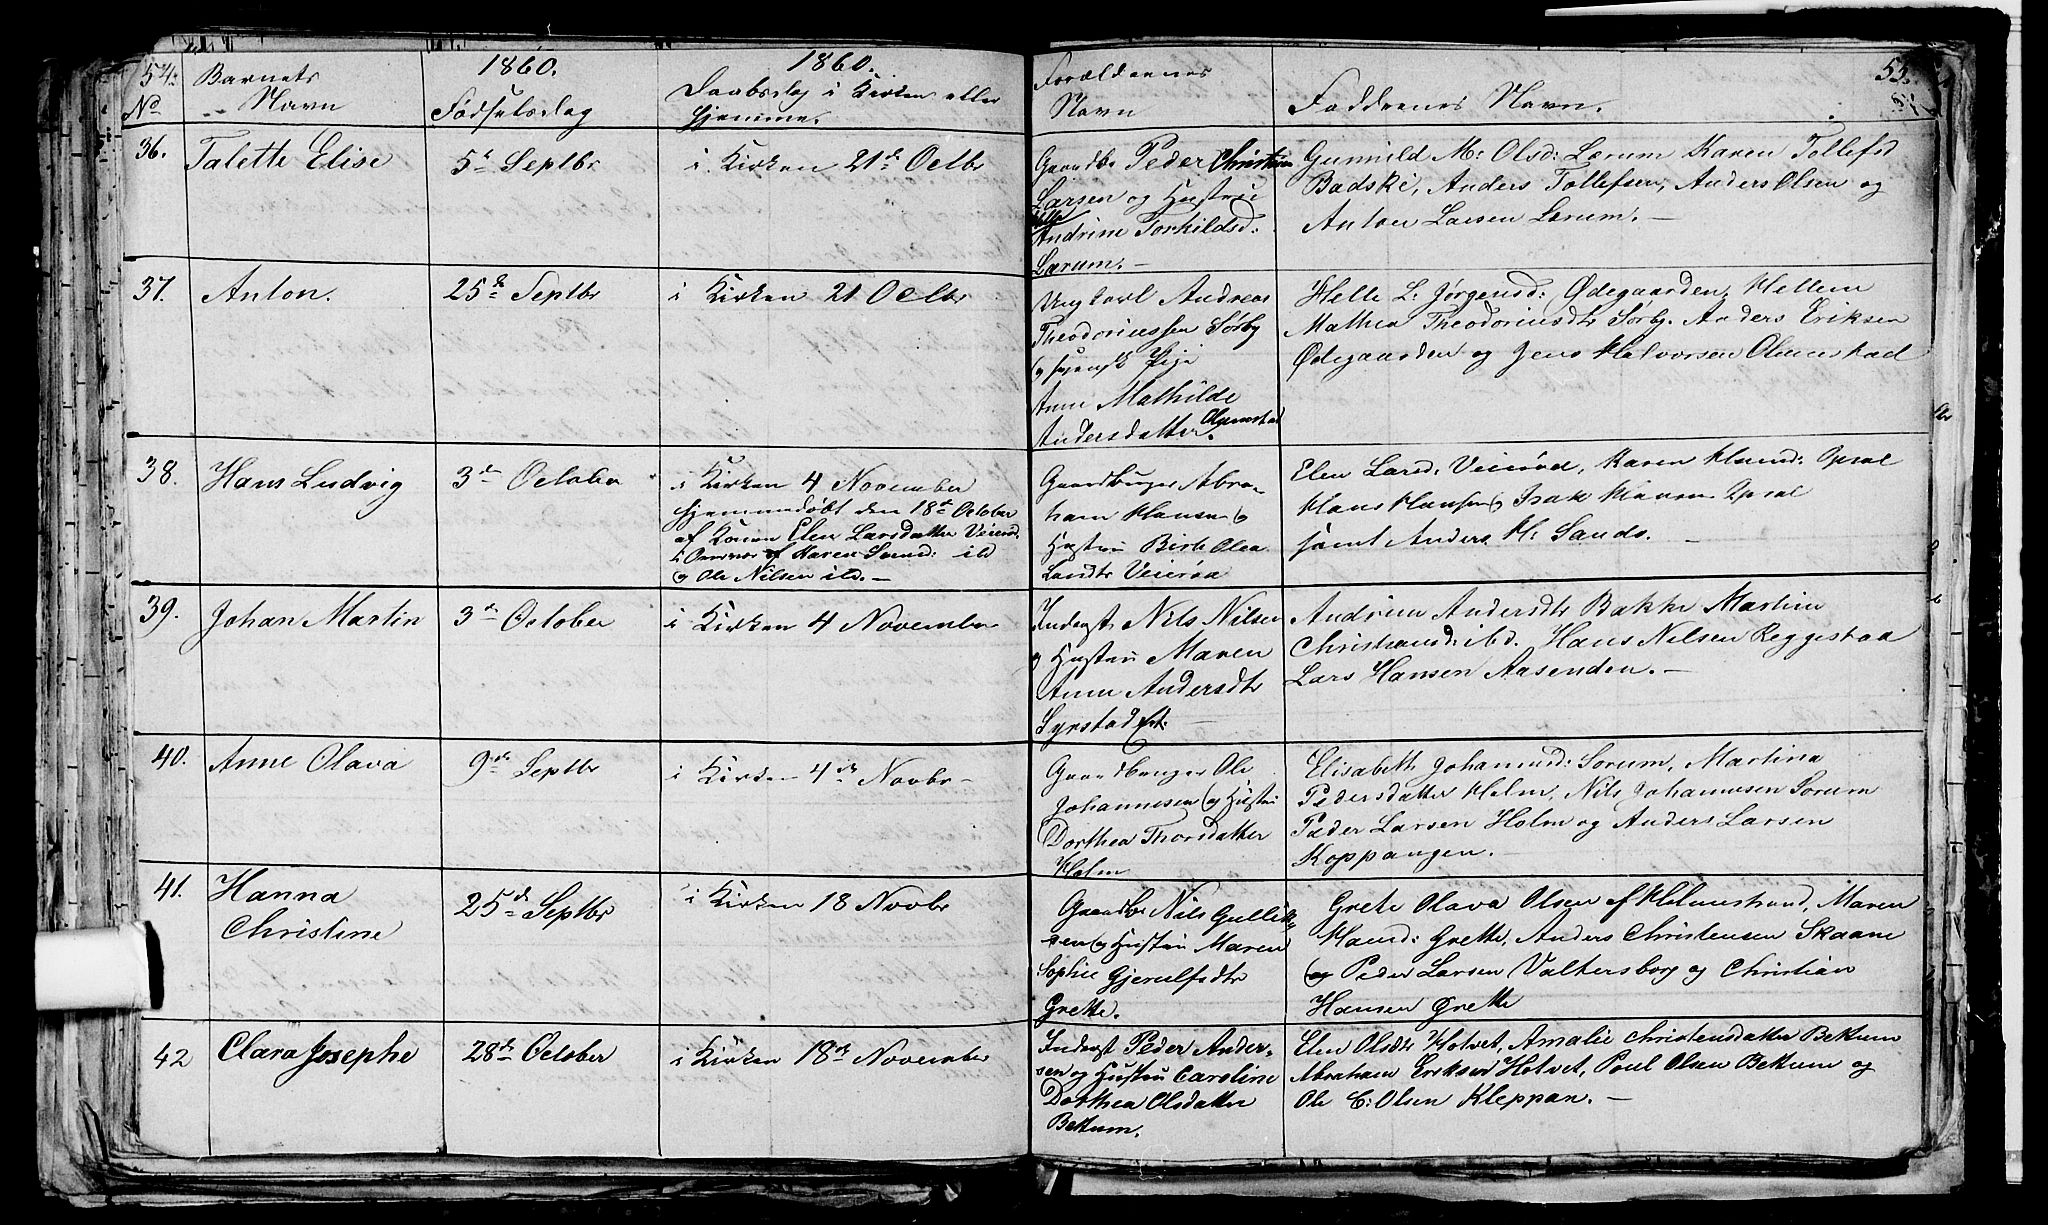 54.
No
Barnets
Navn
1860.
Fødselsdag
1860.
Daabsdag i Kirken eller
hjemme.
Forældrenes
Navn
Faddrenes Navn.
55.
36.
Talette Elise
5t Septbr
i Kirken 21de Octbr
Gaardbr Peder Christian
Larsen og Hustru
Andrine Torkildsd:
Lærum.
Gunnild M: Olsd: Lærum Karen Tollefsd
Badske, Anders Tollefsen, Anders Olsen og
Anton Larsen Lærum. —
37.
Anton.
25de Septbr
i Kirken 21 Octbr
Ungkarl Andreas
Theodoriussen Sørby
og Pige
Anne Mathilde
Andersdatter Olumstad
Helle L: Jørgensd: Ødegaarden, Hellem
Mathea Theodoriusdtr Sørby. Anders Eriksen
Ødegaarden og Jens Halvorsen Olumstad
38.
Hans Ludvig
3de October
i Kirken 4 November
hjemmedøbt den 18de October
af Konen Elen Larsdatter
af Karen
og Ole Nilsen ibd. —
Gaardbruger Abra-
ham Hansen og
Hustru Birte Olea
Veierød
Elen Larsd: Veierød, Karen Hansd: Opsal
Hans Hansen og Isak Opsal
samt Anders H: Sands.
39.
Johan Martin
3de October
i Kirken 4 November
Inderst Nils Nilsen
og Hustru Maren
Anne Andersdtr
Syrstad
Andrine Andersdtr Bakke Martine
Christiansd: ibd. Hans Nilsen Reggestad
Lars Hansen Aasenden. —
40.
Anne Olava
9de Septbr
i Kirken 4de Novbr —
Gaardbruger Ole
Johannesen og Hustru
Dorthea Thorsdatter
Holm
Elisabeth Johannesd: Sørum, Martina
Pedersdatter Holm, Nils Johannesen Sørum
Peder Larsen Holm og Anders Larsen
Koppangen. —
41.
Hanna
Christine
25de Septbr
i Kirken 18 Novbr
Gaardbr Nils Gullik-
sen og Hustru Maren
Sophie Gjerulfsdtr
Grette.
Grete Olava Olsen af Holmestrand, Maren
Hansd: Grette, Anders Christensen Skaane
og Peder Larsen Valtersborg og Christian
Hansen Grette
42
Clara Josephe
28de October
i Kirken 18de November
Inderst Peder Ander-
sen og Hustru Caroline
Dorthea Olsdatter
Bettum.
Elen Olsdtr Holvet, Amalie Christensdatter Bettum
Abraham Eriksen Holvet, Poul Olsen Bettum og
Ole C: Olsen Kleppan. —